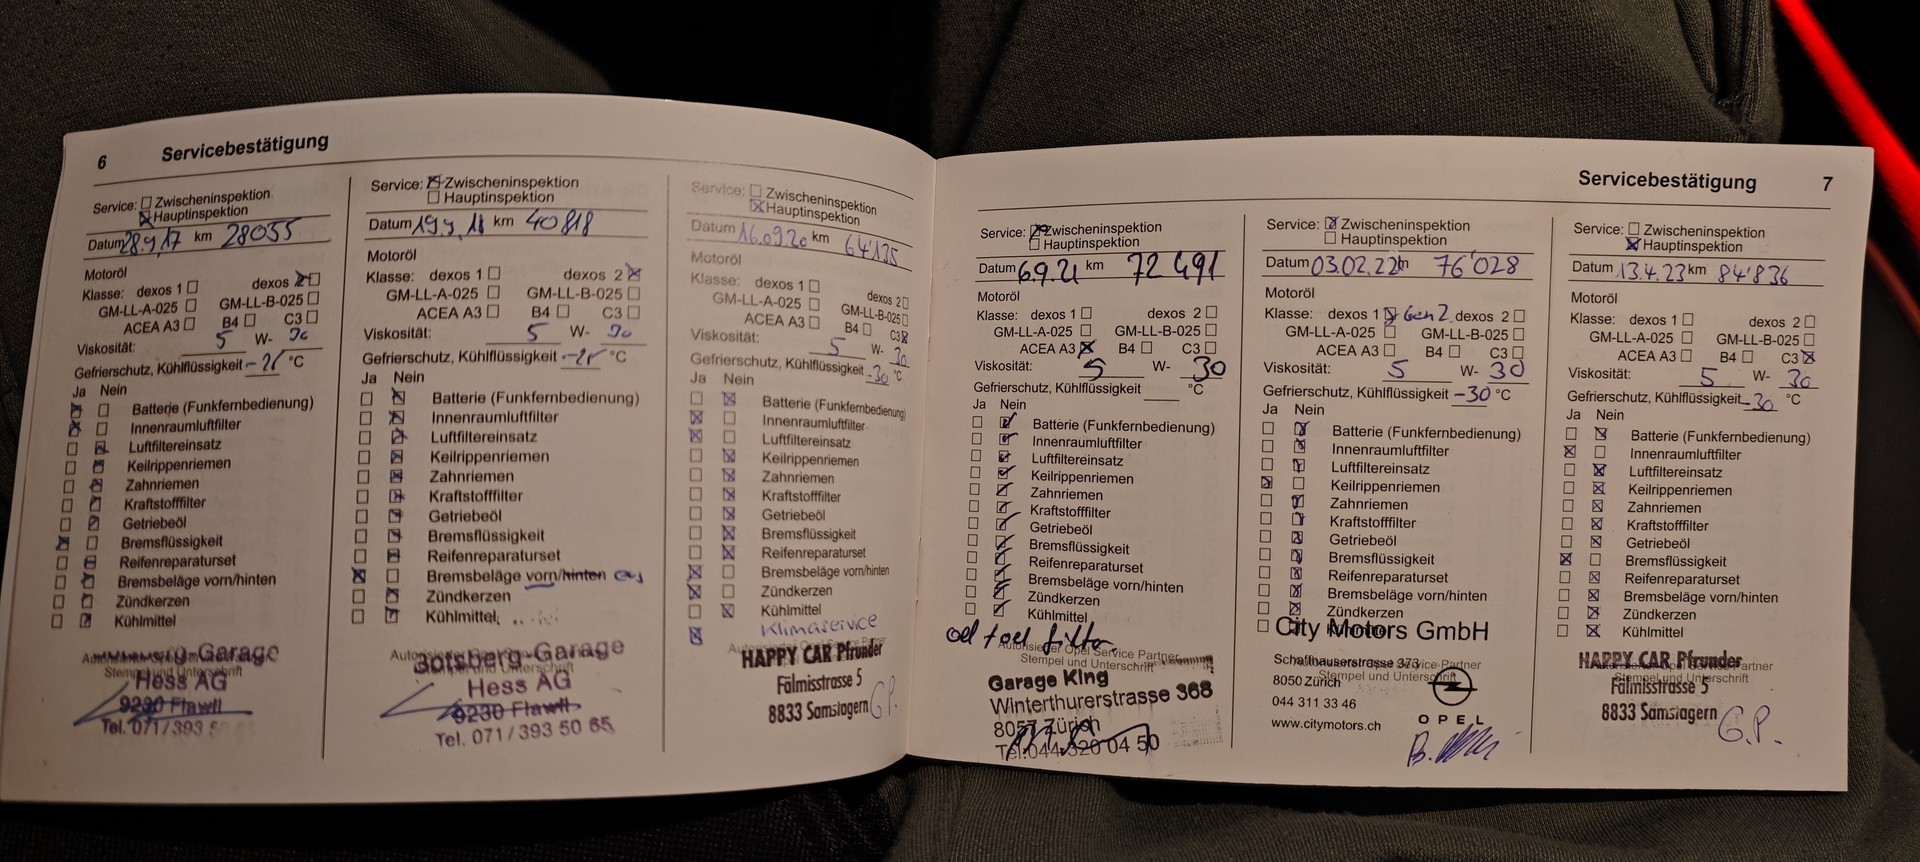 6 Servicebestätigung
Service: ☐ Zwischeninspektion
☒ Hauptinspektion
Datum 28.9.17 km 28055
Motoröl
Klasse: dexos 1 ☐ dexos 2 ☒
GM-LL-A-025 ☐ GM-LL-B-025 ☐
ACEA A3 ☐ B4 ☐ C3 ☐
Viskosität: 5 W- 30
Gefrierschutz, Kühlflüssigkeit °C
Ja Nein
☒ ☐ Batterie (Funkfernbedienung)
☒ ☐ Innenraumluftfilter
☐ ☒ Luftfiltereinsatz
☐ ☒ Keilrippenriemen
☐ ☒ Zahnriemen
☐ ☒ Kraftstofffilter
☐ ☒ Getriebeöl
☒ ☐ Bremsflüssigkeit
☐ ☒ Reifenreparaturset
☐ ☒ Bremsbeläge vorn/hinten
☐ ☒ Zündkerzen
☐ ☒ Kühlmittel
Garage
Hess AG
9230 Flawil
Tel. 071/393 5
Service: ☒ Zwischeninspektion
☐ Hauptinspektion
Datum 19.9.18 km 40818
Motoröl
Klasse: dexos 1 ☐ dexos 2 ☒
GM-LL-A-025 ☐ GM-LL-B-025 ☐
ACEA A3 ☐ B4 ☐ C3 ☐
Viskosität: 5 W- 30
Gefrierschutz, Kühlflüssigkeit °C
Ja Nein
☐ ☒ Batterie (Funkfernbedienung)
☐ ☒ Innenraumluftfilter
☐ ☒ Luftfiltereinsatz
☐ ☒ Keilrippenriemen
☐ ☒ Zahnriemen
☐ ☒ Kraftstofffilter
☐ ☒ Getriebeöl
☐ ☒ Bremsflüssigkeit
☐ ☒ Reifenreparaturset
☒ ☐ Bremsbeläge vorn/hinten
☐ ☒ Zündkerzen
☐ ☒ Kühlmittel
Botsberg-Garage
Hess AG
9230 Flawil
Tel. 071/393 50 65
Service: ☐ Zwischeninspektion
☒ Hauptinspektion
Datum 16.09.20 km 64'135
Motoröl
Klasse: dexos 1 ☐ dexos 2 ☐
GM-LL-A-025 ☐ GM-LL-B-025 ☐
ACEA A3 ☐ B4 ☐ C3 ☒
Viskosität: 5 W- 30
Gefrierschutz, Kühlflüssigkeit -30 °C
Ja Nein
☐ ☒ Batterie (Funkfernbedienung)
☒ ☐ Innenraumluftfilter
☒ ☐ Luftfiltereinsatz
☐ ☒ Keilrippenriemen
☐ ☒ Zahnriemen
☐ ☒ Kraftstofffilter
☐ ☒ Getriebeöl
☐ ☒ Bremsflüssigkeit
☐ ☒ Reifenreparaturset
☒ ☐ Bremsbeläge vorn/hinten
☒ ☐ Zündkerzen
☐ ☒ Kühlmittel
☒ Klimaservice
HAPPY CAR Pfrunder
Fälmisstrasse 5
8833 Samstagern G.P.
Servicebestätigung 7
Service: ☒ Zwischeninspektion
☐ Hauptinspektion
Datum 6.9.21 km 72 491
Motoröl
Klasse: dexos 1 ☐ dexos 2 ☐
GM-LL-A-025 ☐ GM-LL-B-025 ☐
ACEA A3 ☒ B4 ☐ C3 ☐
Viskosität: 5 W- 30
Gefrierschutz, Kühlflüssigkeit °C
Ja Nein
☐ ☒ Batterie (Funkfernbedienung)
☐ ☒ Innenraumluftfilter
☐ ☒ Luftfiltereinsatz
☐ ☒ Keilrippenriemen
☐ ☒ Zahnriemen
☐ ☒ Kraftstofffilter
☐ ☒ Getriebeöl
☐ ☒ Bremsflüssigkeit
☐ ☒ Reifenreparaturset
☐ ☒ Bremsbeläge vorn/hinten
☐ ☒ Zündkerzen
☐ ☒ Kühlmittel
oel + oel filter
Autorisierter Opel Service Partner
Stempel und Unterschrift
Garage King
Winterthurerstrasse 368
8057 Zürich
Tel.044 320 04 50
Service: ☒ Zwischeninspektion
☐ Hauptinspektion
Datum 03.02.22 km 76'028
Motoröl
Klasse: dexos 1 ☒ Gen2 dexos 2 ☐
GM-LL-A-025 ☐ GM-LL-B-025 ☐
ACEA A3 ☐ B4 ☐ C3 ☐
Viskosität: 5 W- 30
Gefrierschutz, Kühlflüssigkeit -30 °C
Ja Nein
☐ ☒ Batterie (Funkfernbedienung)
☐ ☒ Innenraumluftfilter
☐ ☒ Luftfiltereinsatz
☒ ☐ Keilrippenriemen
☐ ☒ Zahnriemen
☐ ☒ Kraftstofffilter
☐ ☒ Getriebeöl
☐ ☒ Bremsflüssigkeit
☐ ☒ Reifenreparaturset
☐ ☒ Bremsbeläge vorn/hinten
☐ ☒ Zündkerzen
☐ ☒ Kühlmittel
City Motors GmbH
Autorisierter Opel Service Partner
Stempel und Unterschrift
Schaffhauserstrasse 373
8050 Zürich
044 311 33 46
www.citymotors.ch
OPEL
Service: ☐ Zwischeninspektion
☒ Hauptinspektion
Datum 13.4.23 km 84'836
Motoröl
Klasse: dexos 1 ☐ dexos 2 ☐
GM-LL-A-025 ☐ GM-LL-B-025 ☐
ACEA A3 ☐ B4 ☐ C3 ☒
Viskosität: 5 W- 30
Gefrierschutz, Kühlflüssigkeit -30 °C
Ja Nein
☐ ☒ Batterie (Funkfernbedienung)
☒ ☐ Innenraumluftfilter
☐ ☒ Luftfiltereinsatz
☐ ☒ Keilrippenriemen
☐ ☒ Zahnriemen
☐ ☒ Kraftstofffilter
☐ ☒ Getriebeöl
☒ ☐ Bremsflüssigkeit
☐ ☒ Reifenreparaturset
☐ ☒ Bremsbeläge vorn/hinten
☐ ☒ Zündkerzen
☐ ☒ Kühlmittel
HAPPY CAR Pfrunder
Fälmisstrasse 5
8833 Samstagern G.P.